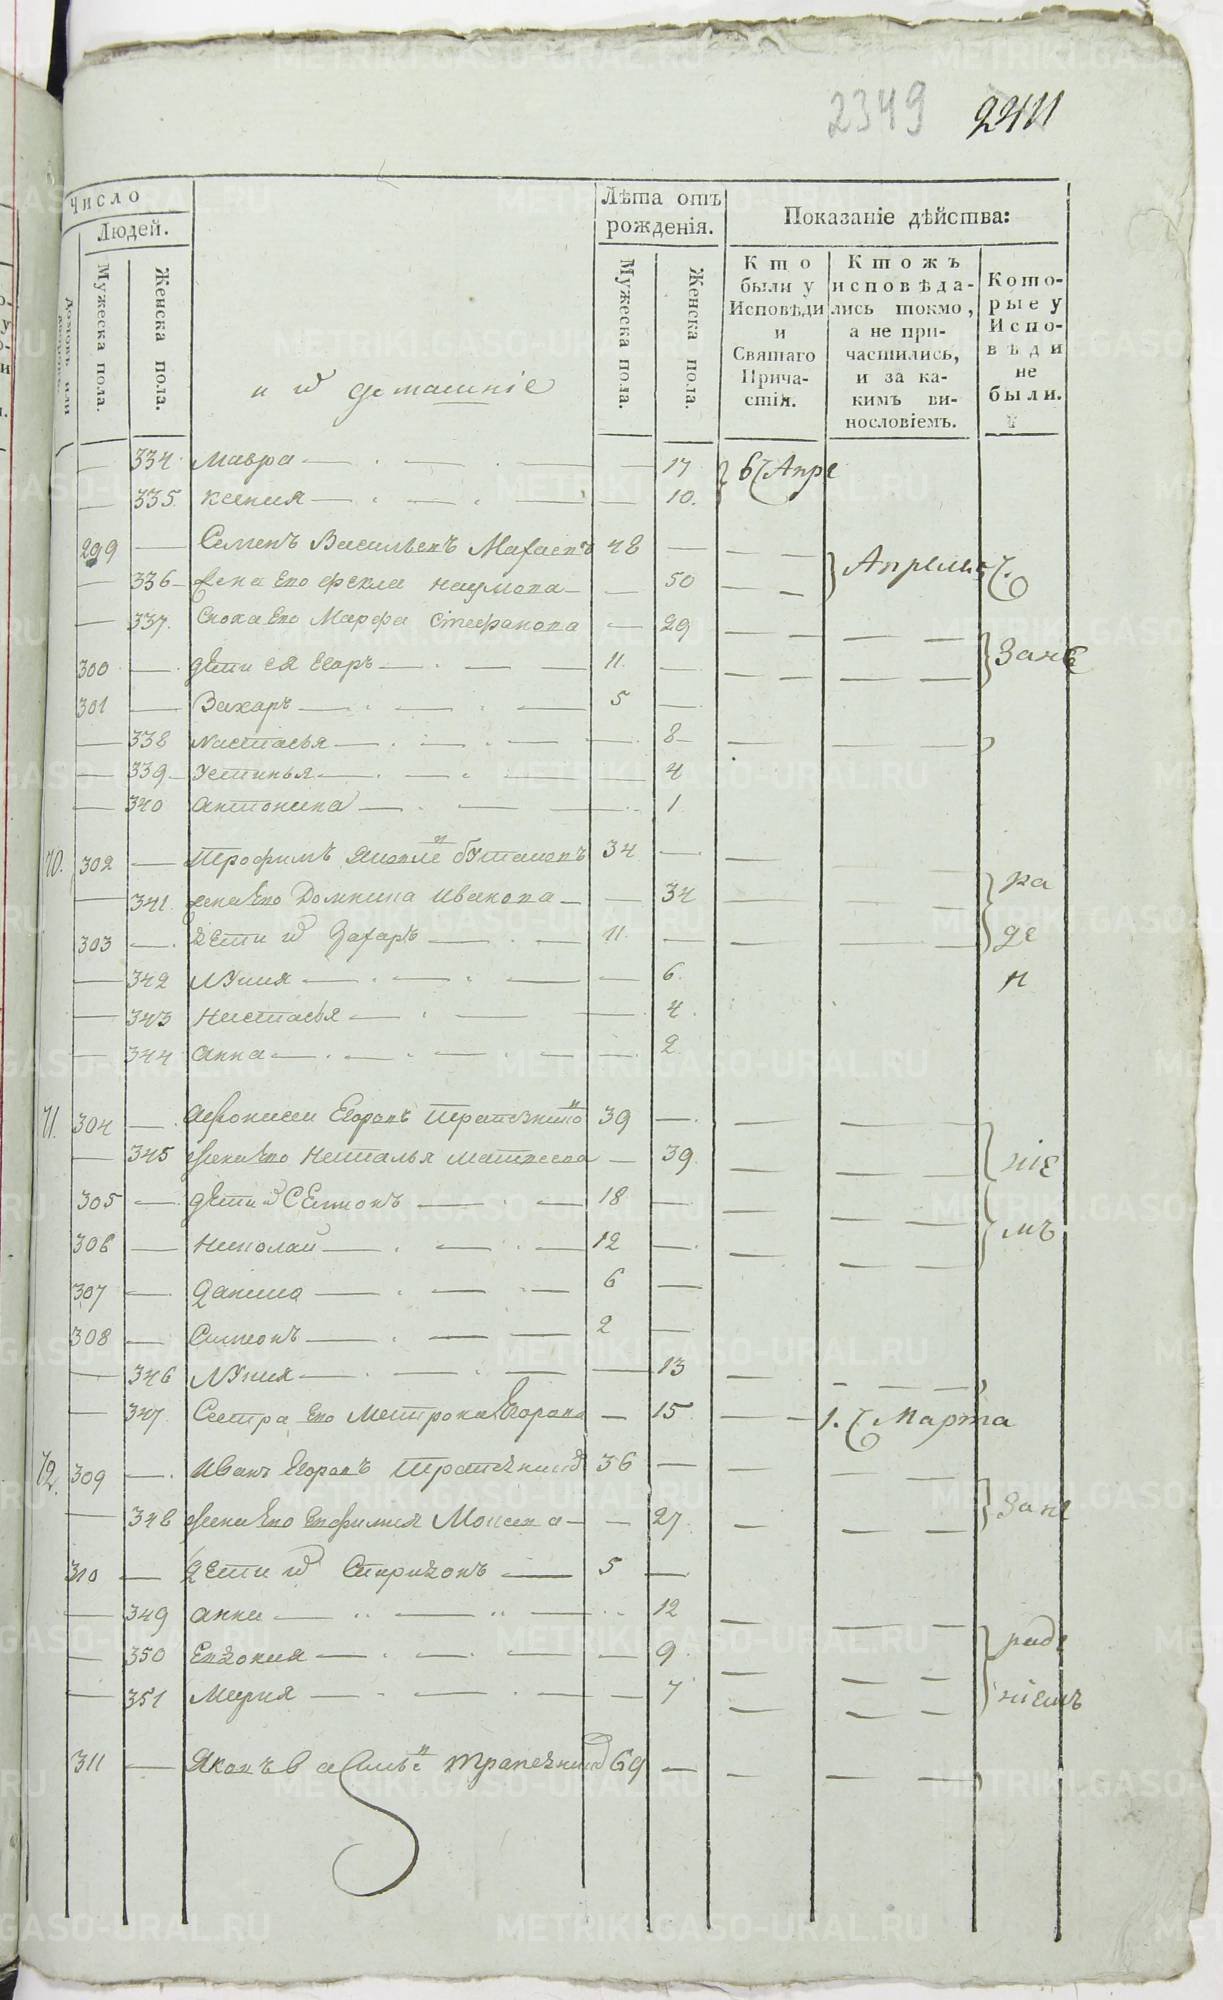 2349 2241
Число
Людей.
Дворовъ или
Мужеска пола.
Женска пола.
Лѣта отъ рожденія.
Мужеска пола.
Женска пола.
Показаніе дѣйства:
Кто были у Исповѣди и Святаго Причастія.
Ктожъ исповѣдались токмо, а не причастились, и за какимъ винословіемъ.
Которые у Исповѣди не были.
и ѿ домашніе
334 Мавра 17 6 Апре
335 Ксенія 10
299 Семенъ Васильевъ 48
336 жена его Фекла Наумова 50 Апреля 7
337 Сноха его Марфа Стефанова 29
300 дѣти ея Егоръ 11 Зане
301 Захаръ 5
338 Настасья 8
339 Устинья 4
340 Антонина 1
70. 302 Трофимъ 34
341 жена его Домнина Иванова 34 ра
303 дѣти ѿ Захаръ 11 де
342 Лукия 6 н
343 Настасья 4
344 Анна 2
71. 304 Егоровъ 39
345 жена его Наталья Матвеева 39 ніе
305 дѣти ѿ Семионъ 18
306 Николай 12 мъ
307 Данило 6
308 Симеонъ 2
346 Лукия 13
347 Сестра его Матрона Егорова 15 1. Марта
72. 309 Иванъ Егоровъ 36
348 жена его Евфимия Моисеева 27 Зане
310 дѣти ѿ Спиридонъ 5
349 Анна 12
350 Евдокия 9 раде
351 Мария 7 ніемъ
311 Яковъ Васильевъ Трапезник 69